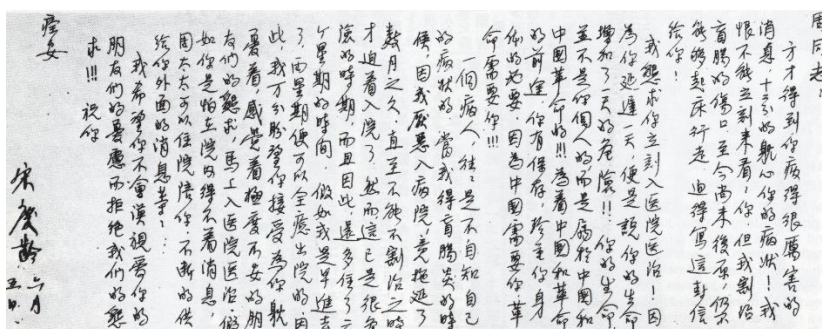 周同志：
方才得到你病得很厉害的
消息，十二分的躭心你的病状！我
恨不能立刻来看你，但我割治
盲腸的傷口至今尚未復原，仍不
能够起床行走，迫得写這封信
给你！
我懇求你立刻入医院医治！因
為你延遲一天，便是説你的生命
增加了一天的危險！！你的生命
並不是你個人的而是属於中國和
中國革命的！！！為着中國和革命
的前途，你有保存，珍重你身
体的必要，因為中國需要你革
命需要你！！！
一個病人，往往是不自知自己
的病状的。當我得盲腸炎的時
候，因我厭惡入病院，竟拖延了
数月之久，直至不能不割治之時
才迫着入院了，然而這已是很危
險的時期，而且因此，還多住了六
个星期的時间，假如我是早進去
了，两星期便可以全癒出院的。因
此，我万分盼望你接受為你躭
憂着，感覺着極度不安的朋
友們的懇求，馬上入医院医治，假
如你是怕在院内得不着消息，
周太太可以住院陪你，不断的供
给你外面的消息等等……
我希望你不會漠視愛你的
朋友們的憂慮而拒绝我們的懇
求！！！祝你
痊安
宋慶齡 六月
五日